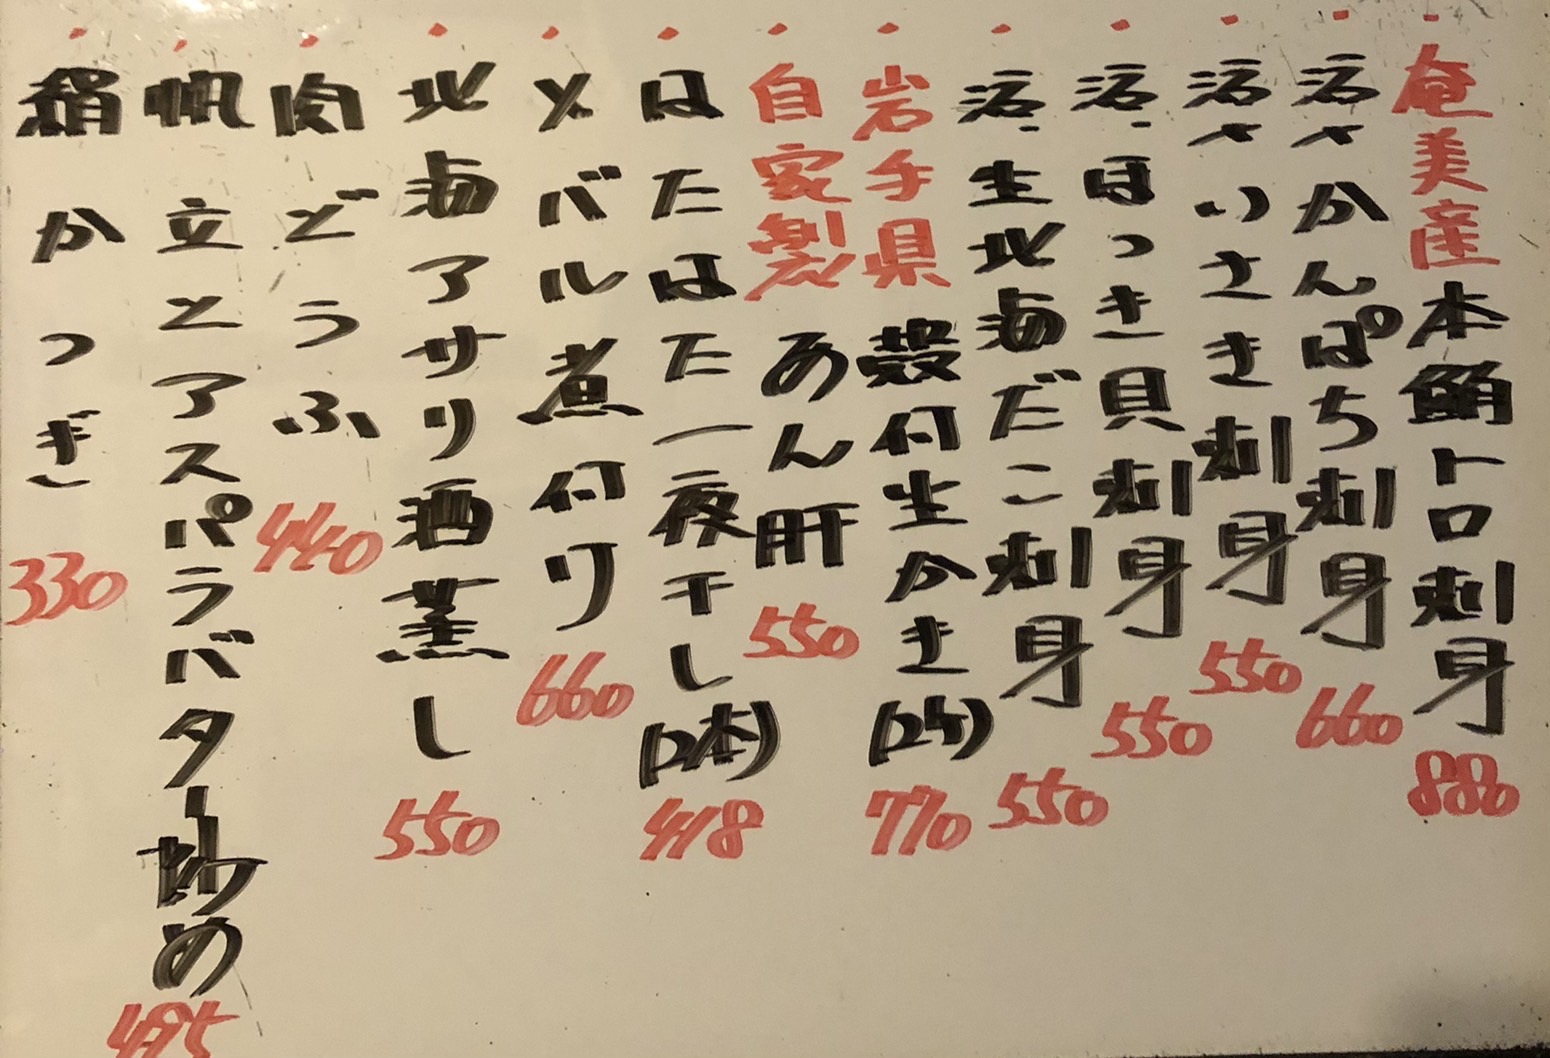 奄美産本鮪トロ刺身 880
活〆かんぱち刺身 660
活〆いさき刺身 550
活〆ほっき貝刺身 550
活〆生北海だこ刺身 550
岩手県殻付生かき(2ケ) 770
自家製あん肝 550
はたはた一夜干し(2本) 418
メバル煮付け 660
北海アサリ酒蒸し 550
肉どうふ 440
帆立とアスパラバター炒め 495
絹かつぎ 330